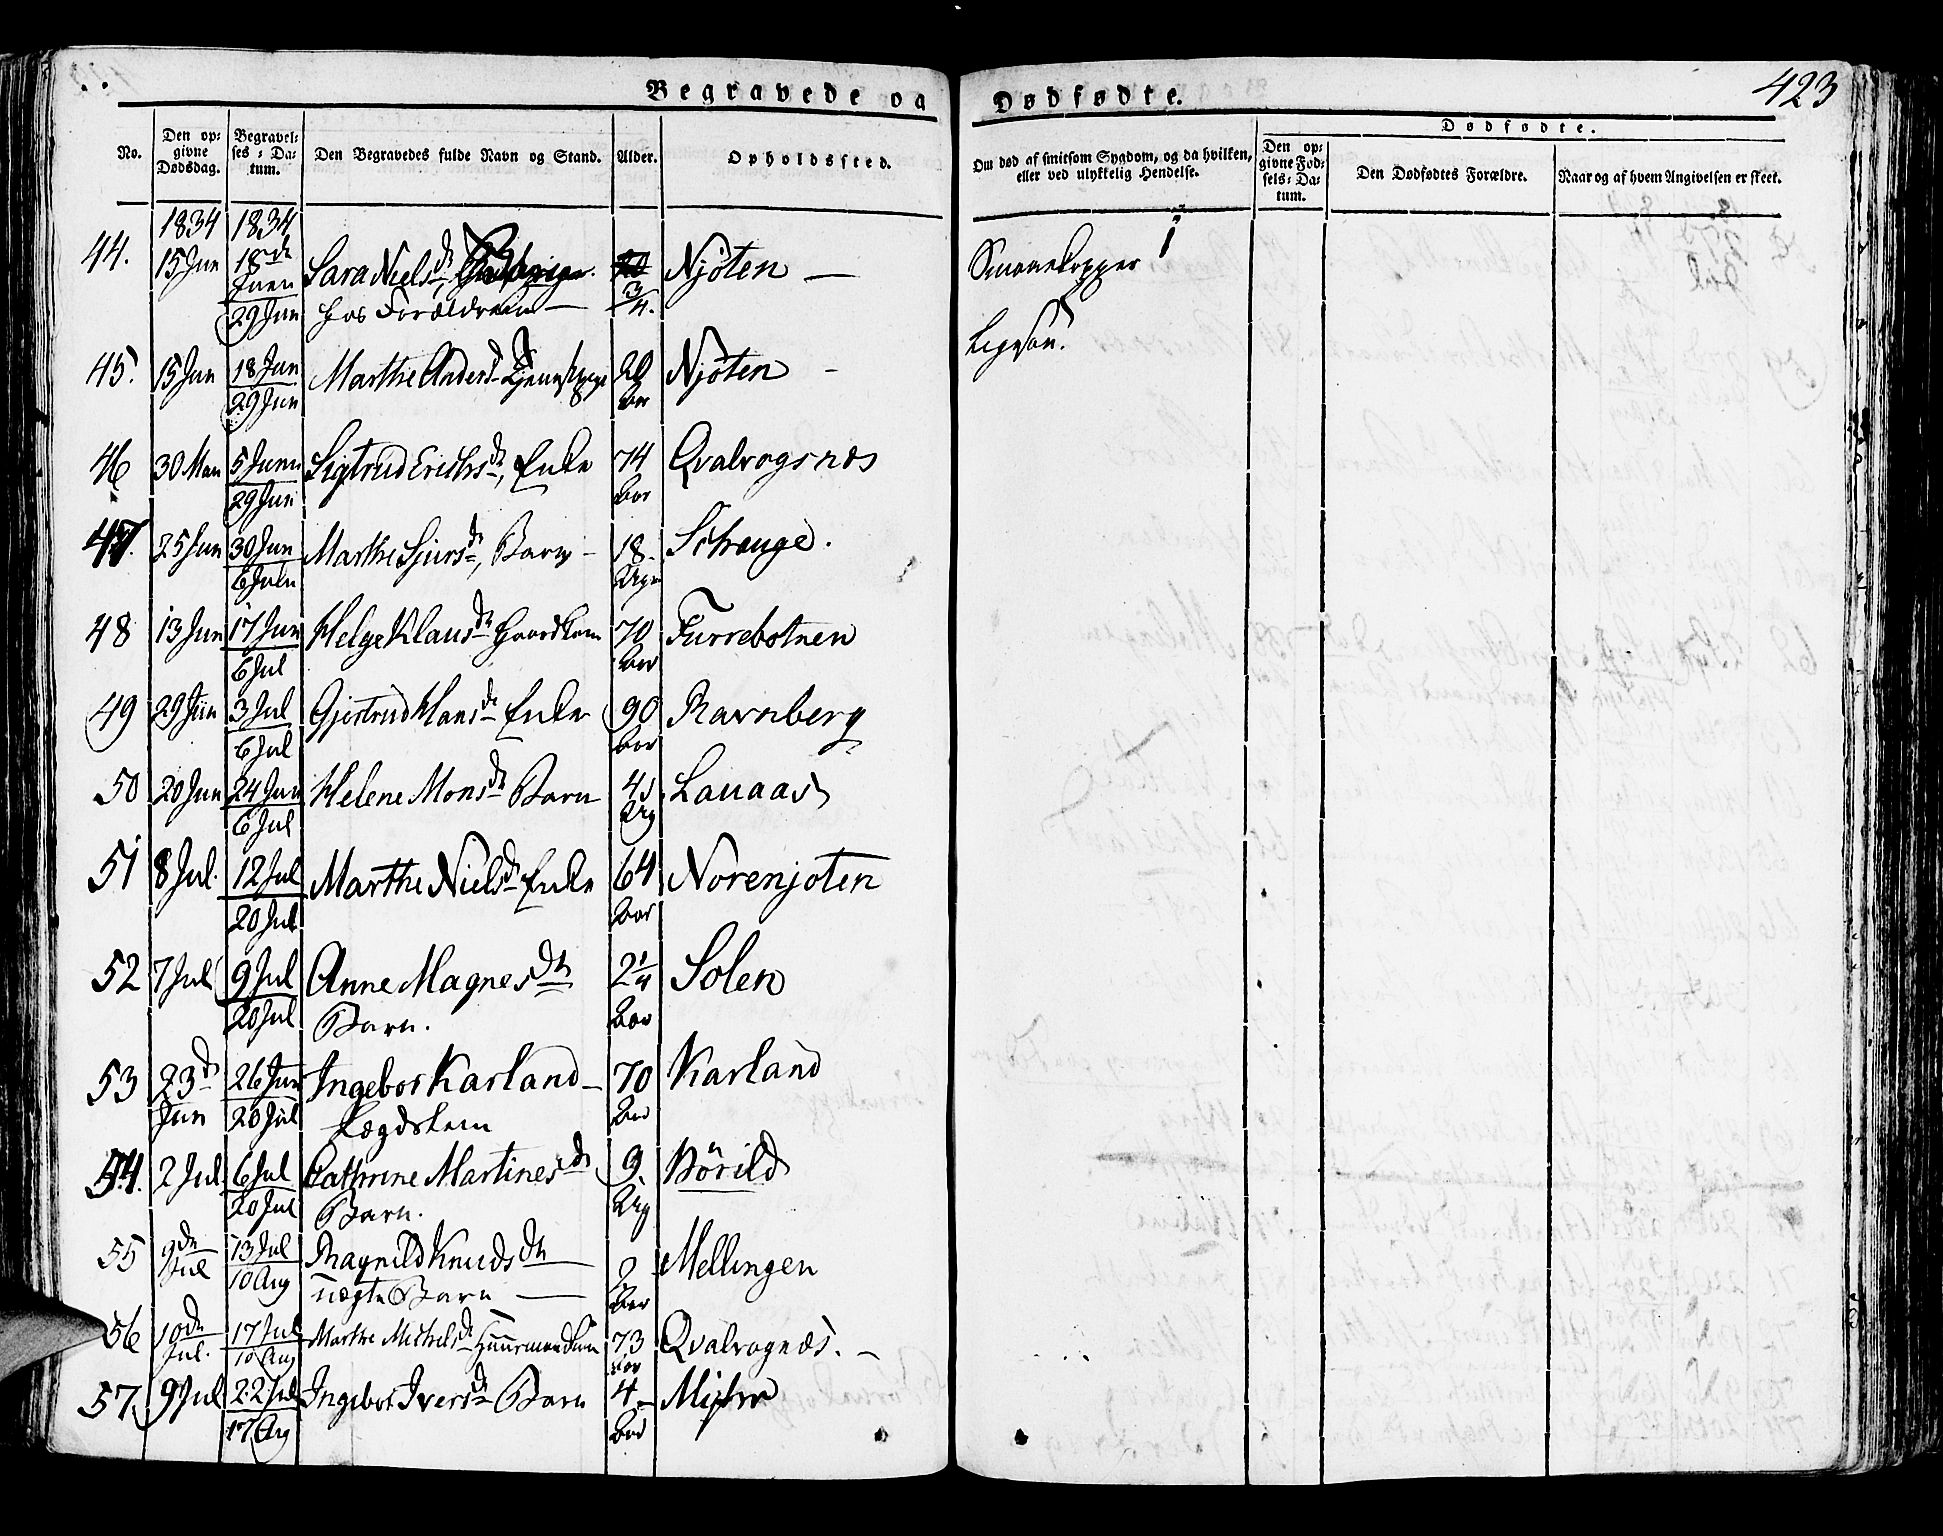 423
Begravede og Dødfødte.
No.
Den op-
givne
Dødsdag.
Begravel-
ses-Da-
tum.
Den Begravedes fulde Navn og Stand.
Alder.
Opholdssted.
Om død af smitsom Sygdom, og da hvilken,
eller ved ulykkelig Hendelse.
Dødfødte.
Den op-
givne Fød-
sels-Da-
tum.
Den Dødfødtes Forældre.
Naar og af hvem Angivelsen er skeet.
1834 1834
44. 15 Jun 18de Juni 29 Jun Sara Nielsdr, 3/4. Njøten —
hos Forældrene —
45. 15 Jun 18 Jun 29 Jun Marthe Andersdr Aar Njøten -
46 30 Mai 5 Juni 29 Jun Sigtrud Erichsdr, Enke 74 Aar Qvalvogsnæs
47. 25 Jun 30 Jun 6 Juli Marthe Sjursdr, Barn - 18. Uger
48 13 Jun 17 Jun 6 Jul Helge Klausdr Huuskone 70 Aar Furrebotnen
49 29 Jun 3 Jul 6 Jul Gjertrud Hansdr Enke 90 Aar Ravnberg
50 20 Jun 24 Jun 6 Jul Helene Monsdr Barn Ug Lauaas
51 8 Jul. 12 Jul 20 Jul Marthe Nielsdr Enke 64 Aar Norenjoten
52 7 Jul 9 Jul 20 Jul Anne Magnesdr 2 1/4 Aar Solen
Barn.
53 23de Jun 26 Jun 20 Jul Ingebor Karland - 70 Aar Karland
Lægdslem
54. 2 Jul 6 Jul 20 Jul Cathrine Martinesdr 9. Ug Börild
Barn.
55 9de Jul 13 Jul 10 Aug Ragnild Knudsdr 2 Aar Mellingen
uægte Barn —
56 10de Jul. 17 Jul 10 Aug Marthe Michelsdr 73 Aar Qvalvognæs. -
57. 9 Jul 22 Jul 17 Aug Ingebor Iversdr Barn 4 - Aar